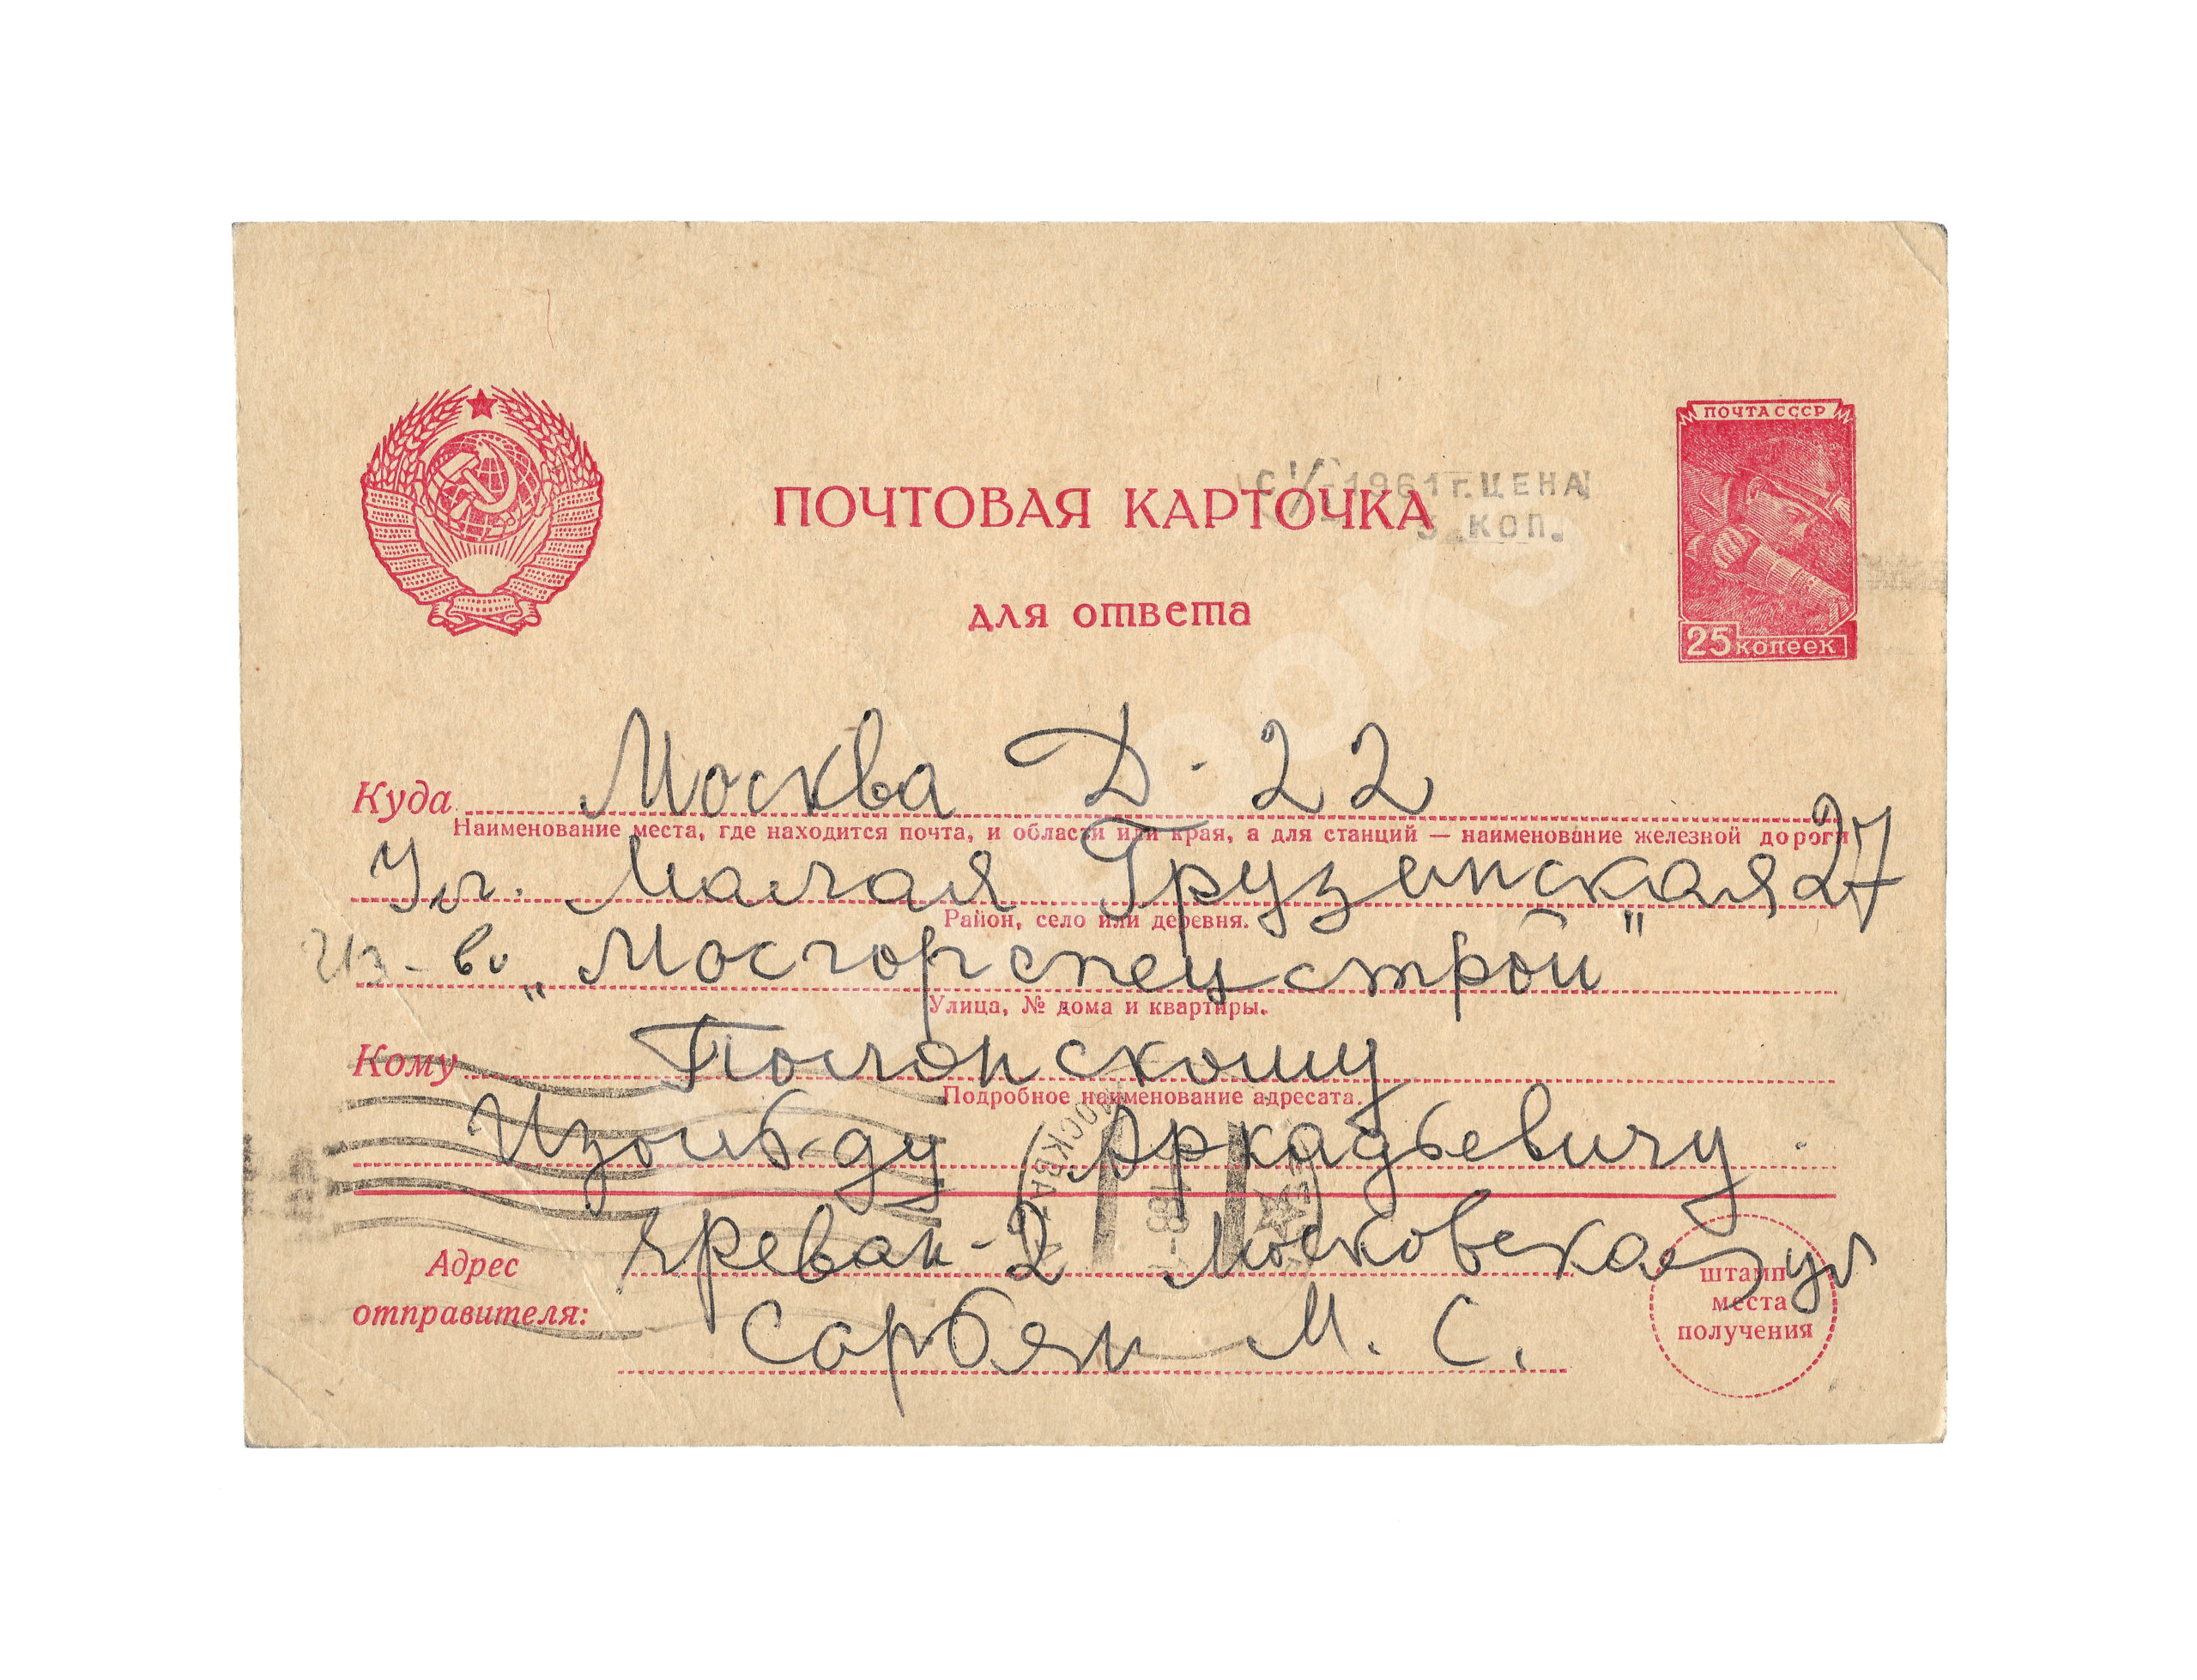 ПОЧТА СССР
С 1/I-1961 г. ЦЕНА
ПОЧТОВАЯ КАРТОЧКА
3 КОП.
для ответа
25 копеек
Москва Д-22
Куда
Наименование места, где находится почта, и области или края, а для станций — наименование железной дороги
Ул. Малая Грузинская 27
Район, село или деревня.
Из-во „Мосгорспецстрой"
Улица, № дома и квартиры.
Кому Полонскому
Подробное наименование адресата.
Изоль-ду Аркадьевичу
МОСКВА
Ереван-2 Московская ул
Адрес
отправителя:
Сарьян М. С.
штамп
места
получения